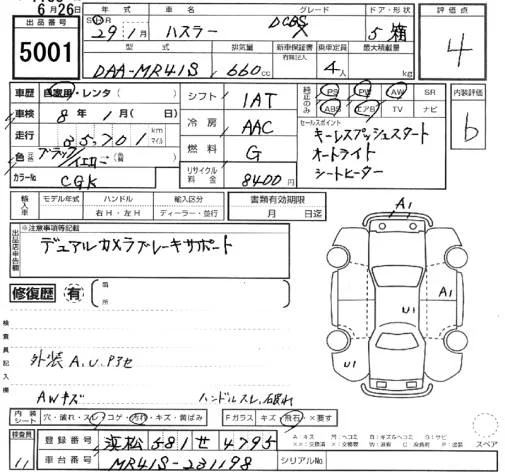 6月26日
出品番号
5001
年式 車名 グレード ドア・形状
SⒽR 29年1月 ハスラー DCBS X 5 箱
型式 排気量 新車保証書 有無記入 乗車定員 最大積載量
DAA-MR41S 660cc 4人 kg
評価点
4
内装評価
b
車歴 自家用・レンタ
車検 8年1月(日)
走行 35,701 km マイル
色 ブラック/イエロー
カラーNo CGK
シフト 1AT
冷房 AAC
燃料 G
リサイクル料金 8400円
純正のみ PS PW AW SR
ABS エアB TV ナビ
セールスポイント
キーレスプッシュスタート
オートライト
シートヒーター
輸入車 モデル年式 ハンドル 輸入区分
年 右H・左H ディーラー・並行
書類有効期限
月 日迄
出品店申告欄
※注意事項等記載
デュアルカメラブレーキサポート
修復歴 有 箇所
検査員記入欄
外装A.U.P3セ
AWキズ ハンドルスレ、破れ
A1
A1
U1
U1
内装シート 穴・破れ・スレ・コゲ・汚れ・キズ・黄ばみ
Fガラス キズ・飛石・×要す
検査員
11
登録番号 浜松 581 せ 4795
車台番号 MR41S-231198
シリアルNo
スペア